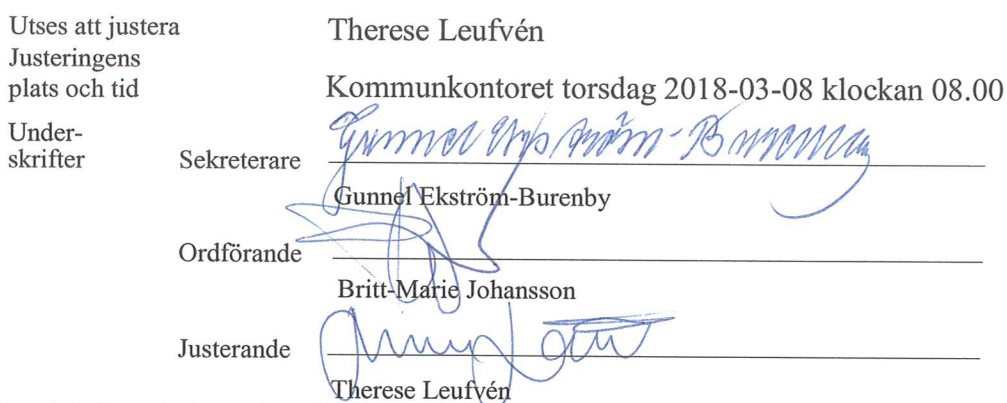 Utses att justera Therese Leufvén
Justeringens
plats och tid Kommunkontoret torsdag 2018-03-08 klockan 08.00
Under-
skrifter Sekreterare Gunnel Ekström-Burenby
Gunnel Ekström-Burenby
Ordförande
Britt-Marie Johansson
Justerande
Therese Leufvén